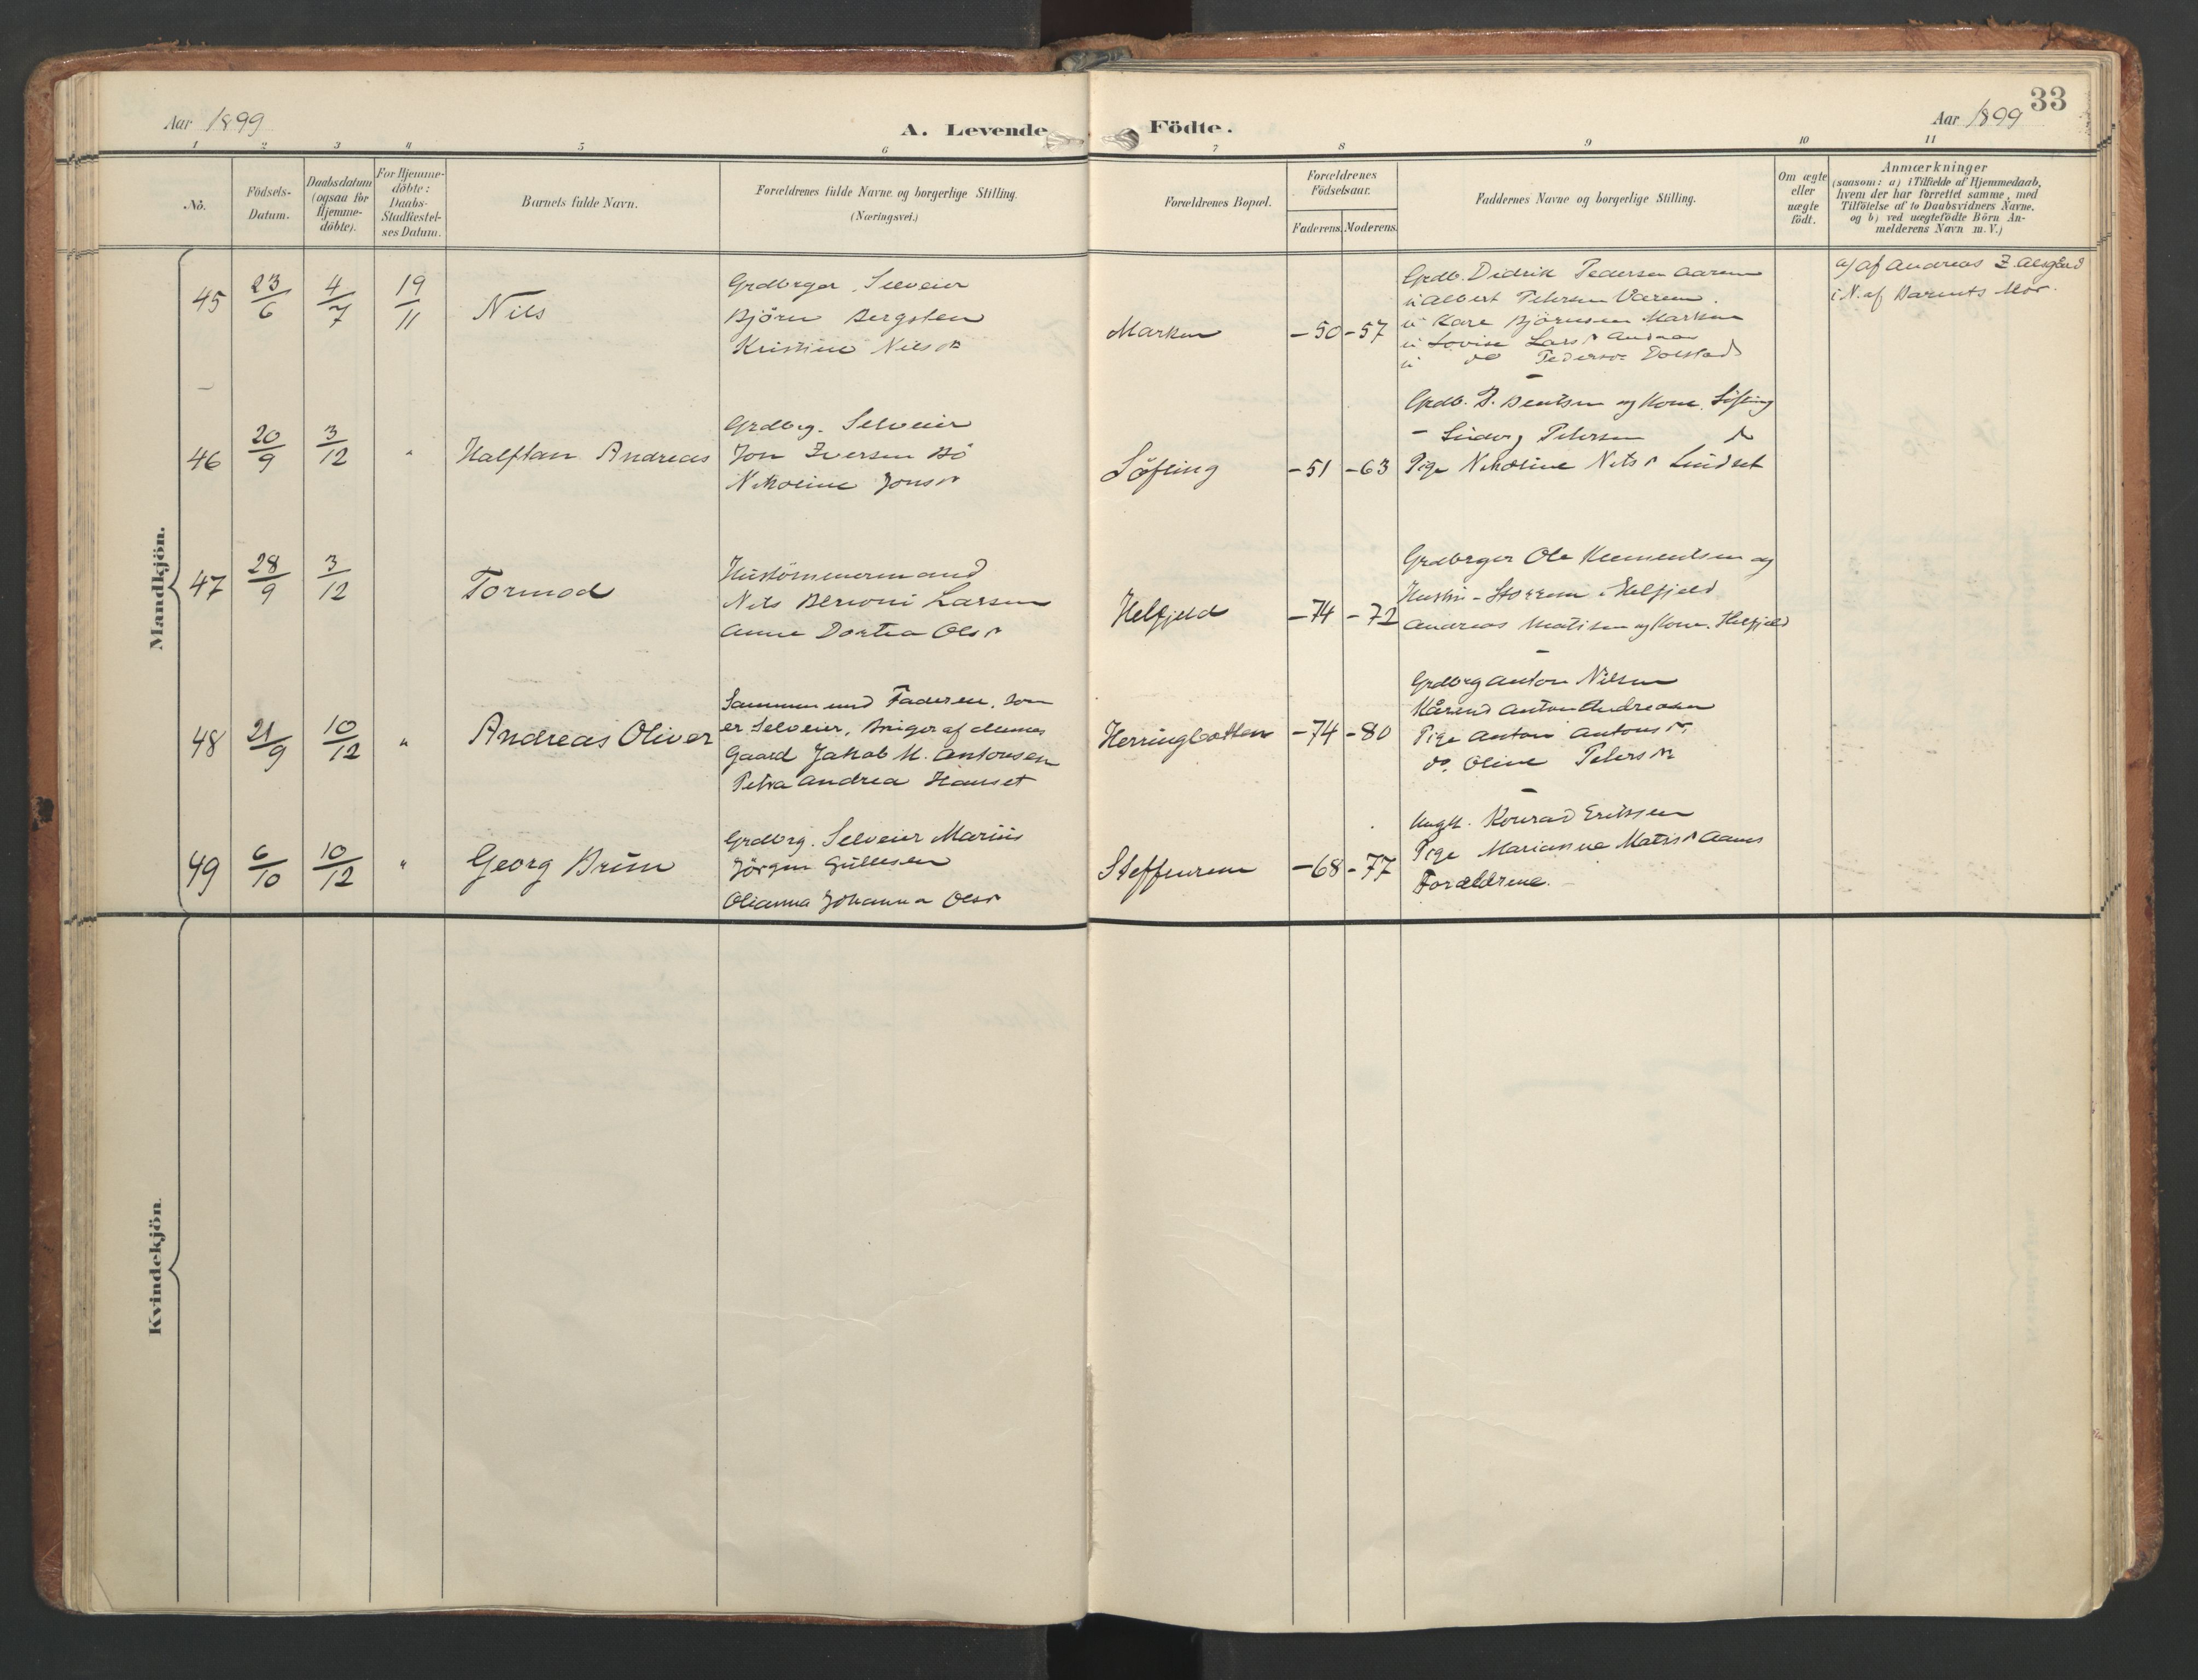 Aar 1899
A. Levende Födte.
Aar 1899
33
1 2 3 4 5 6 7 8 9 10 11
No.
Födsels-
Datum.
Daabsdatum
(ogsaa for
Hjemme-
döbte).
For Hjemme-
döbte:
Daabs-
Stadfæstel-
ses Datum.
Barnets fulde Navn.
Forældrenes fulde Navne og borgerlige Stilling.
(Næringsvei.)
Forældrenes Bopæl.
Forældrenes
Födselsaar.
Faderens. Moderens.
Faddernes Navne og borgerlige Stilling.
Om ægte
eller
uægte
födt.
Anmærkninger
(saasom: a) i Tilfælde af Hjemmedaab,
hvem der har forrettet samme, med
Tilföielse af to Daabsvidners Navne.
og b) ved uægtefödte Börn An-
melderens Navn m. V.)
Mandkjön.
45 23/6 4/7 19/11 Nils
Grdbrger. Selveier
Björn Bergsten
Kristine Nilsdr
Marken -50 -57
Grdb. Didrik Pedersen
Albert Petersen
Björnsen Marken
Lovise Larsdr
do Pedersdr Dolstad
a) af Andreas Z. Alsgård
i N. af Barnets Mor.
46 20/9 3/12 " Halftan Andreas
Grdbrg. Selveier
Jon Iversen Bö
Nikoline Jonsdr
Söfting -51 -63
Grdb. P. Bentsen og Kone. Söfting
- Ludvig Petersen
Pige Nikoline Nilsdr Lindset
47 28/9 3/12 Tormod
Hustömmermand
Nils Larsen
Anne Dortea Olsdr
Helfjeld -74 -72
Grdbrger Ole Klementsen og
Hustru - i Helfjeld
Andreas Matisen og Kone. Helfjeld
48 21/9 10/12 " Andreas Oliver
Sammen med Faderen, som
er Selveier, Bruger af dennes
Gaard Jakob M. Antonsen
Petra Andrea Hanset
Herringbotten -74 -80
Grdbrg Anton Nilsen
Anton Andreasen
Pige Antonsdr
do. Oline Petersdr
49 6/10 10/12 " Georg Brun
Grdbrg. Selveier Marius
Jörgen Gullesen
Olianna Johanna Olsdr
Steffenrem -68 -77
Ungk. Konrad Eriksen
Pige Marianne Matisdr Aanes
Forældrene.
Kvindekjön.